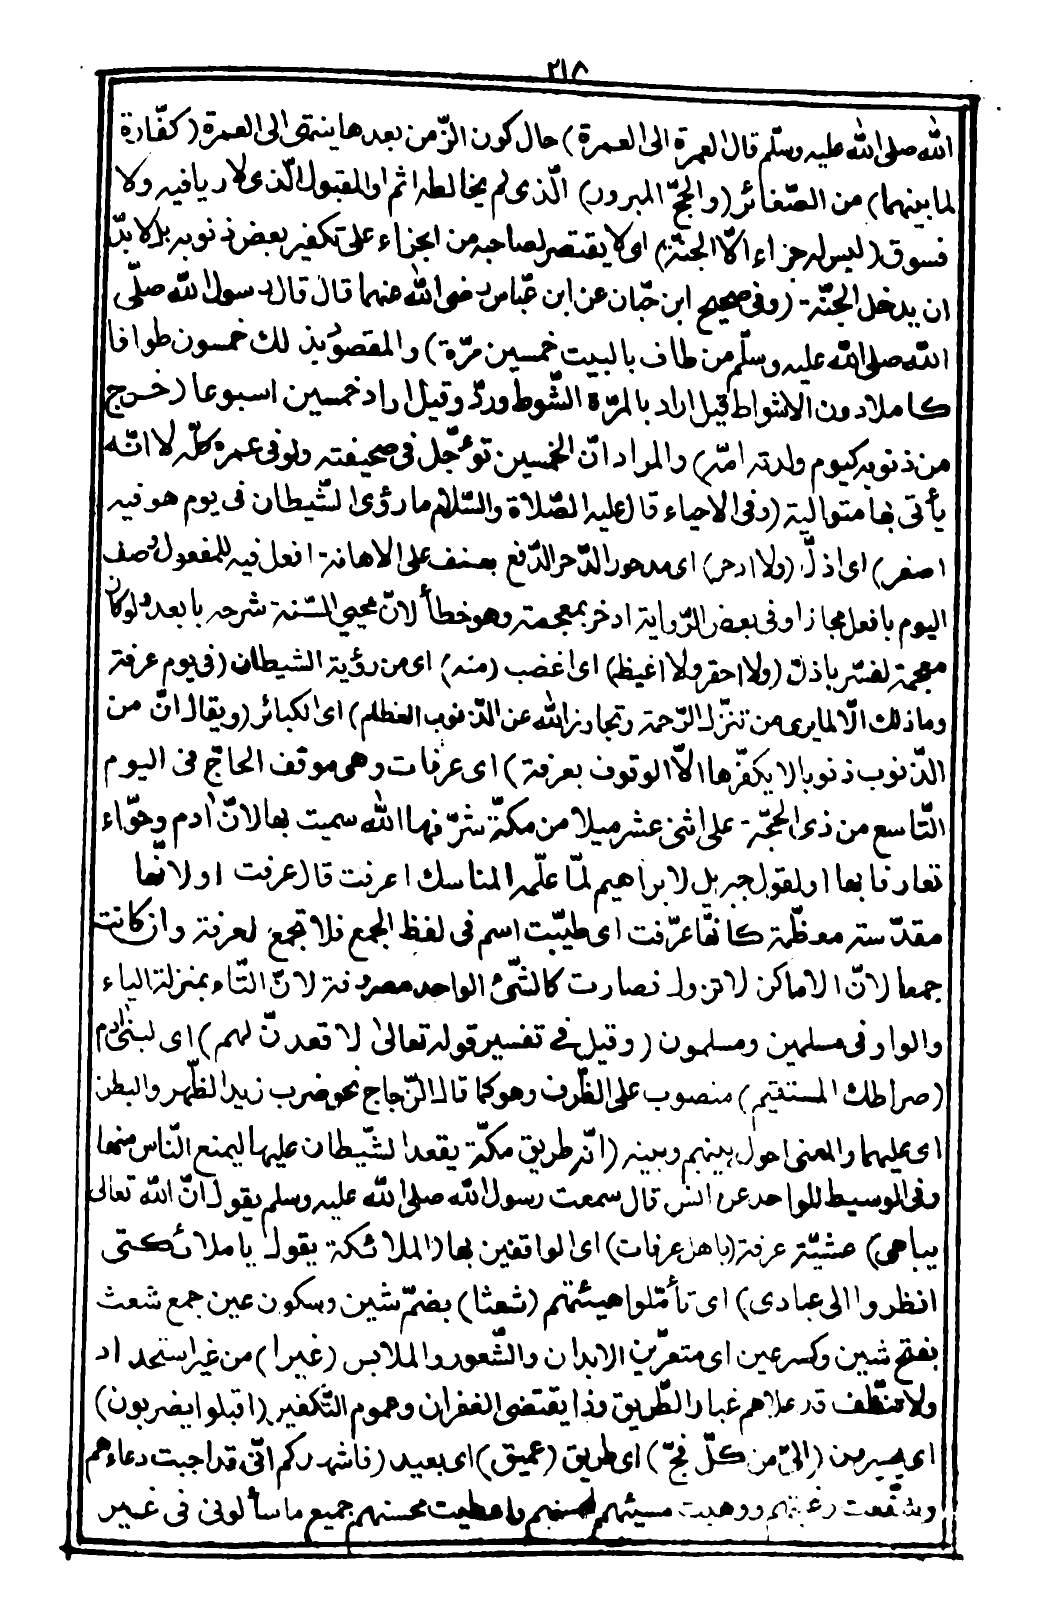 ٢١٨
الله صلى الله عليه وسلّم قال العمرة الى العمرة) حال كون الزّمن بعدها ينتهى الى العمرة (كفّارة
لما بينهما) من الصّغائر (والحجّ المبرور) الّذى لم يخالطه اثم اوالمقبول الّذى لا رياء فيه ولا
فسوق (ليس له جزاء الّا الجنّة) اى لا يقتصر لصاحبه من الجزاء على تكفير بعض ذنوبه بل لا بدّ
ان يدخل الجنّة (وفى صحيح ابن حبّان عن ابن عبّاس رضى الله عنهما قال قال رسول الله صلّى
الله صلى الله عليه وسلّم من طاف بالبيت خمسين مرّة) والمقصود بذلك خمسون طوافا
كاملا دون الاشواط قيل اراد بالمرّة الشّوط وردّ وقيل اراد خمسين اسبوعا (خرج
من ذنوبه كيوم ولدته امّه) والمراد انّ الخمسين توجّل فى صحيفته ولو فى عمره كلّه لا انّه
يأتى بها متوالية (وفى الاحياء قال عليه الصّلاة والسّلام ما رؤى الشّيطان فى يوم هو فيه
اصغر) اى اذلّ (ولا ادحر) اى مدحور الدّحر الدّفع بعنف على الاهانة افعل فيه للمفعول وصف
اليوم بافعل مجازا وفى بعض الرّواية ادخر بمعجمة وهو خطأ لانّ محيي السّنة شرحه بابعد ولو كان
معجمة لفسّر باذلّ (ولا احقر ولا اغيظ) اى اغضب (منه) اى من رؤية الشيطان (فى يوم عرفة
وما ذلك الّا لما يرى من تنزّل الرّحمة وتجاوز الله عن الذّنوب العظام) اى الكبائر (ويقال انّ من
الذّنوب ذنوبا لا يكفّرها الّا الوقوف بعرفة) اى عرفات وهى موقف الحاجّ فى اليوم
التّاسع من ذى الحجّة على اثنى عشر ميلا من مكّة شرّفها الله سميت بها لانّ ادم وحوّاء
تعارفا بها اولقول جبريل لابراهيم لمّا علّمه المناسك اعرفت قال عرفت اولانّها
مقدّسته معظّمة كانّها عرّفت اى طيّبت اسم فى لفظ الجمع فلا تجمع لعرفة وان كانت
جمعا لانّ الاماكن لا تزول فصارت كالشّئ الواحد مصروفة لانّ التّاء بمنزلة الياء
والواو فى مسلمين ومسلمون (وقيل فى تفسير قوله تعالى لاقعدنّ لهم) اى لبنى ادم
(صراطك المستقيم) منصوب على الظّرف وهو كما قال الزّجاج نحو ضرب زيد الظّهر والبطن
اى عليهما والمعنى احول بينهم وبينه (انّه طريق مكّة يقعد الشّيطان عليها ليمنع النّاس منها
وفى الوسيط للواحد عن انس قال سمعت رسول الله صلى الله عليه وسلم يقول انّ الله تعالى
يباهى) عشيّة عرفة (باهل عرفات) اى الواقفين بها (الملائكة يقول يا ملائكتى
انظروا الى عبادى) اى تأمّلوا هيئتهم (شعثا) بضمّ شين وسكون عين جمع شعث
بفتح شين وكسر عين اى متعرّين الابدان والشّعور والملابس (غبرا) من غير استحداد
ولا تنظّف قد علاهم غبار الطّريق وذا يقتضى الغفران وعموم التّكفير (اقبلوا يضربون)
اى يسيرون (الىّ من كلّ فجّ) اى طريق (عميق) اى بعيد (فاشهدكم انّى قد اجبت دعاءهم
وشفّعت رغبتهم ووهبت مسيئهم لمحسنهم واعطيت محسنهم جميع ما سألونى فى غير